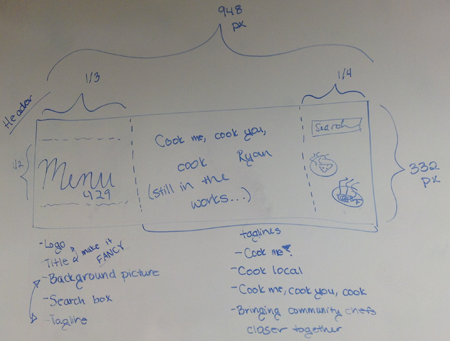 948
px
Header
1/3
1/4
1/2
Menu
429
Cook me, cook you,
cook Ryan
(still in the
works...)
Search
332
px
-Logo
Title & make it
FANCY
-Background picture
-Search box
-Tagline
taglines
-Cook me
-Cook local
-Cook me, cook you, cook
-Bringing community chefs
closer together